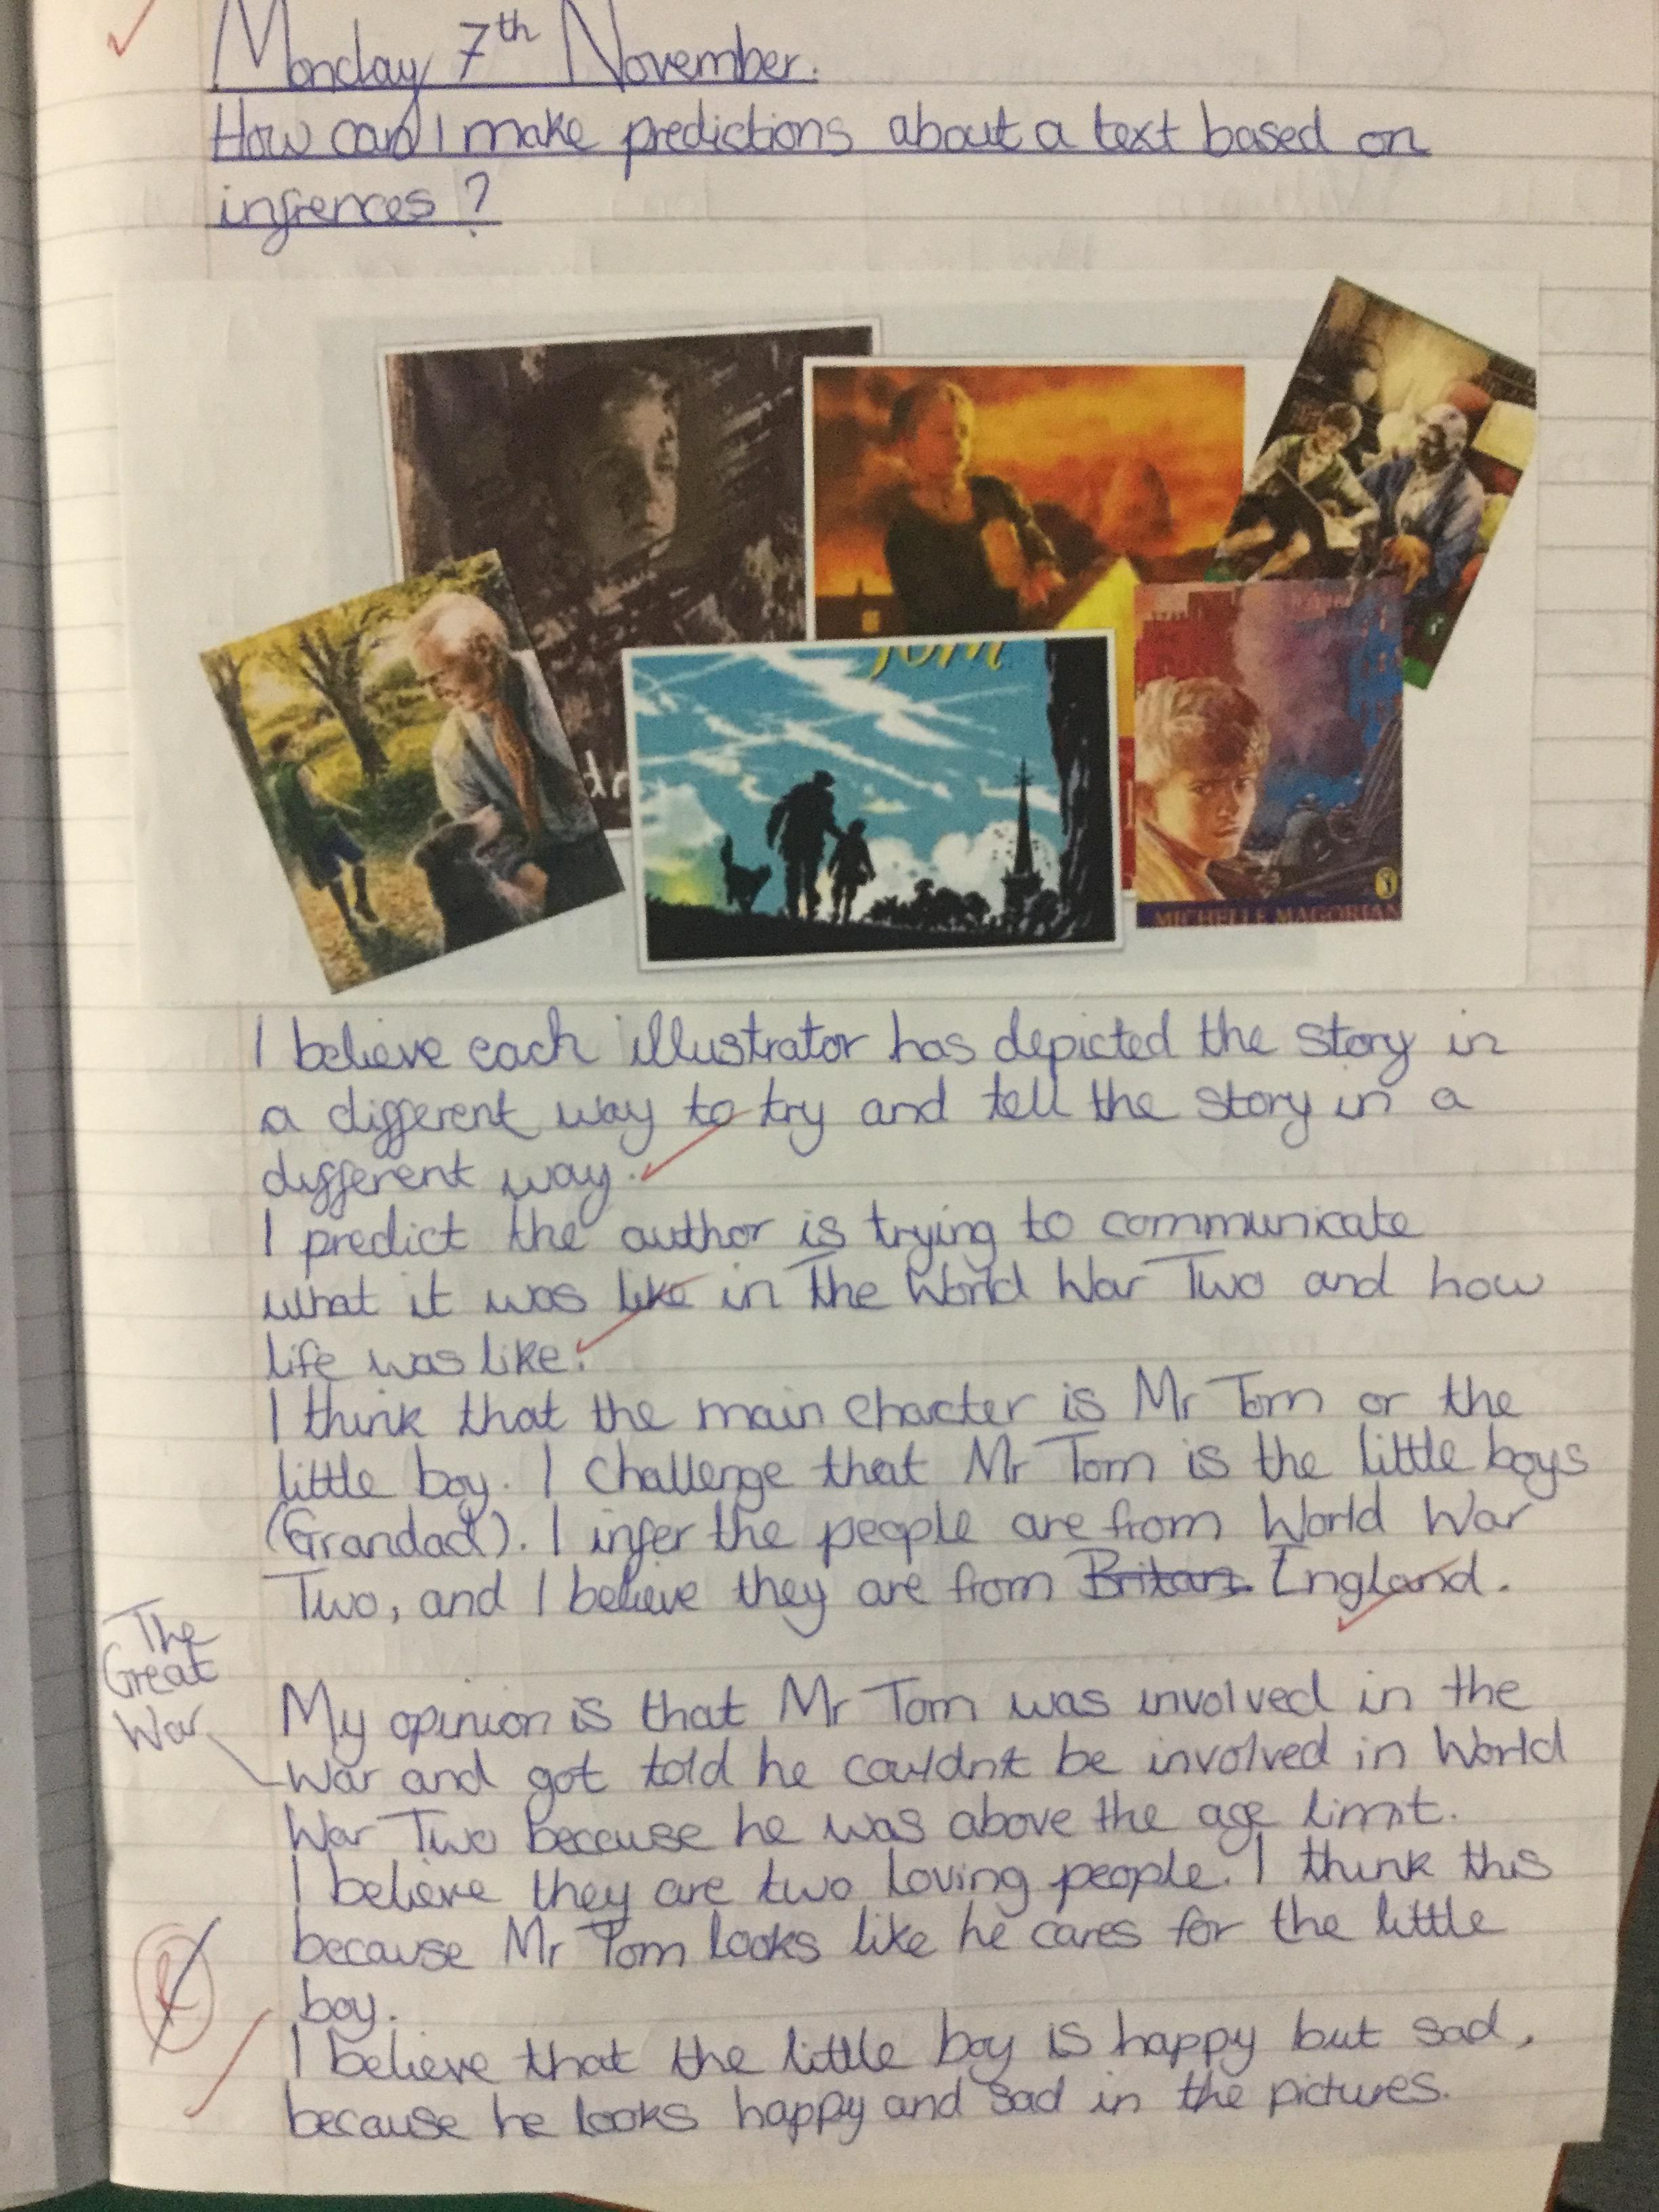 Monday 7th November.
How can I make predictions about a text based on
infrences?
TOM
MICHELLE MAGORIAN
I believe each illustrator has depicted the story in
a different way to try and tell the story in a
different way.
I predict the author is trying to communicate
what it was like in the World War Two and how
life was like.
I think that the main charcter is Mr Tom or the
little boy. I challenge that Mr Tom is the little boys
(Grandad). I infer the people are from World War
Two, and I believe they are from Britan England.
The
Great
War
My opinion is that Mr Tom was involved in the
War and got told he couldnt be involved in World
War Two because he was above the age limit.
I believe they are two loving people. I think this
because Mr Tom looks like he cares for the little
boy.
I believe that the little boy is happy but sad,
because he looks happy and sad in the pictures.